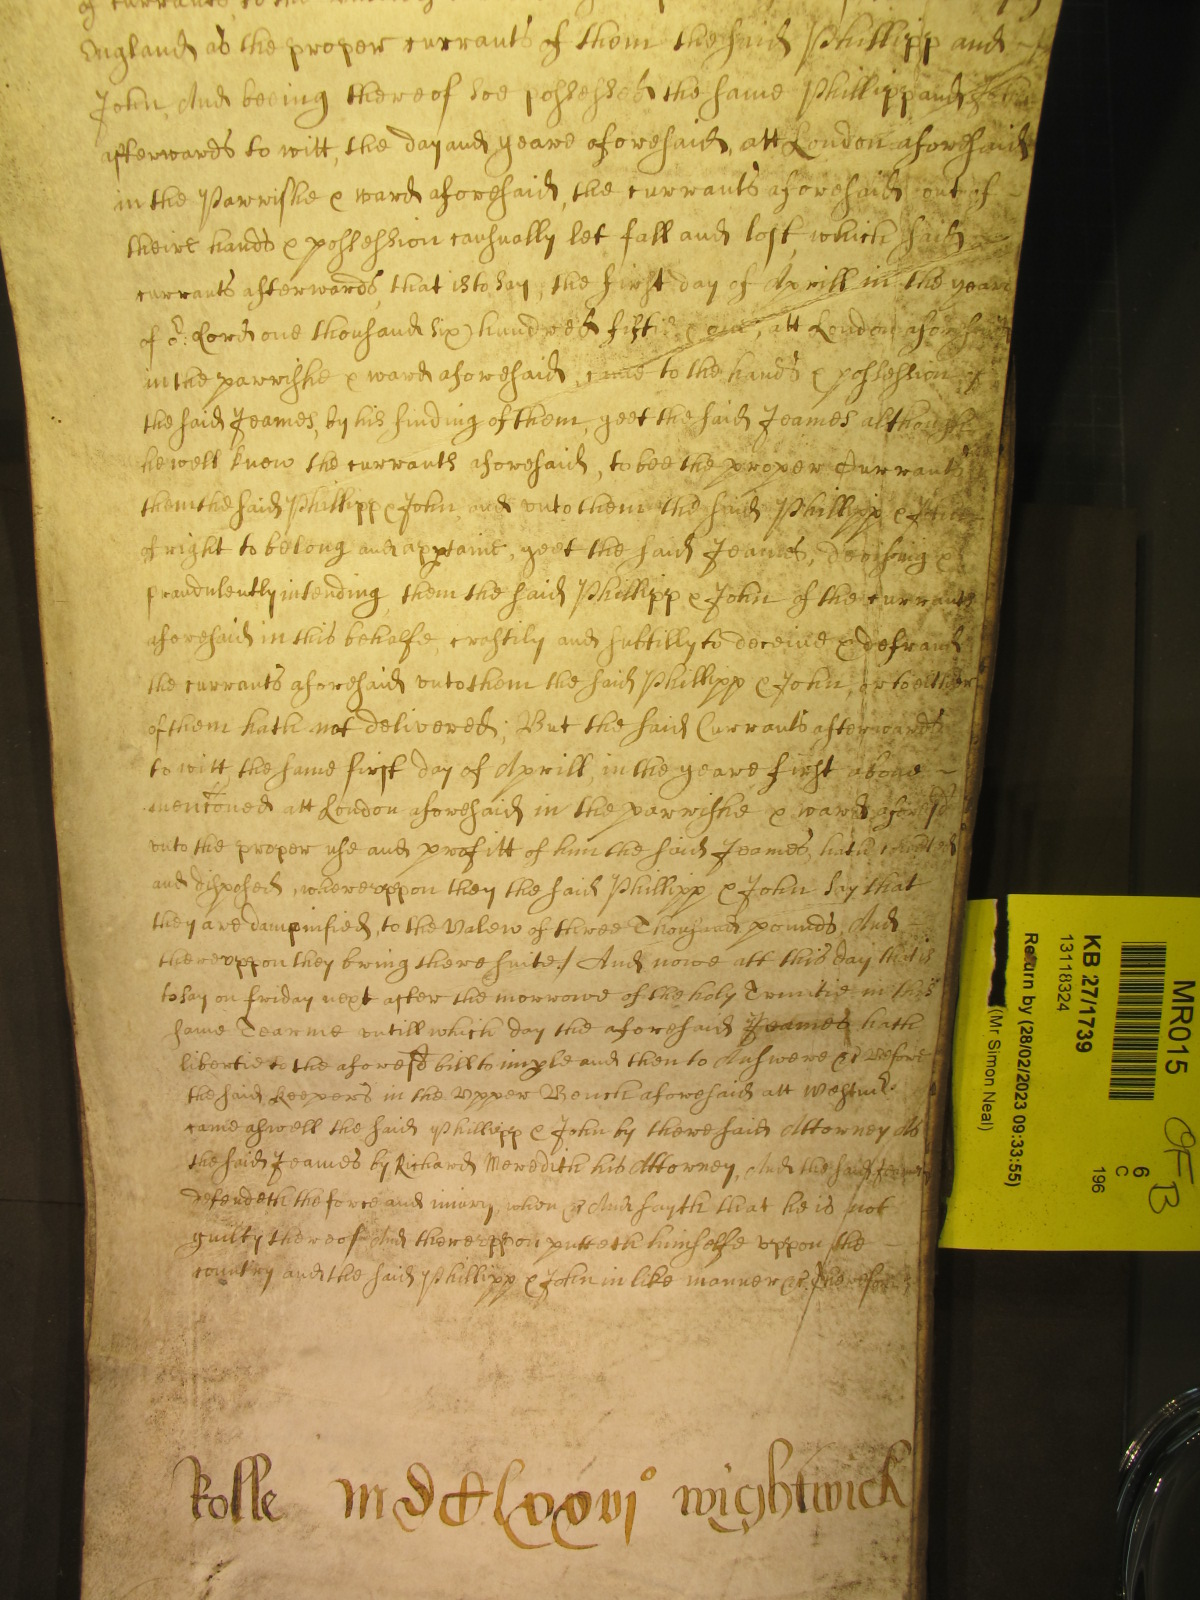 of currants to the
England as the proper currants of them the said Phillipp and
John, And beeing thereof soe possessed the same Phillipp and John
afterwards to witt, the day and yeare aforesaid, att London aforesaid
in the Parrishe & ward aforesaid, the currants aforesaid out of
theire hands & possession causually let fall and lost, which said
currants afterwards, that is to say, the first day of Aprill in the yeare
of or: Lord one thousand six hundred fiftie & one, att London aforesaid
in the parrishe & ward aforesaid, came to the hands & possession of
the said Jeames, by his finding of them, yeet the said Jeames although
he well knew the currants aforesaid, to bee the proper Currants
them the said Phillipp & John, and unto them the said Phillipp & John
of right to belong and apptaine, yeet the said Jeames, devising &
fraudulently intending, them the said Phillipp & John of the currants
aforesaid in this behalfe, craftily and suttilly to deceive & defraud
the currants aforesaid unto them the said Phillipp & John, or to either
of them hath not delivered; But the said Currants afterwards
to witt, the same first day of Aprill, in the yeare first above
mencioned att London aforesaid in the parrishe & ward aforesd
unto the proper use and profitt of him the said Jeames, hath converted
and disposed, whereuppon they the said Phillipp & John say that
they are dampnified, to the Valew of three Thousand pounds, And
thereuppon they bring there suite./ And nowe att this day that is
to say on friday next after the morrowe of the holy Trinitie in this
same Tearme untill which day the aforesaid Jeames hath
libertie to the aforesd bill to imple and then to Answere &c Before
the said keepers in the Upper Bench aforesaid att Westmr.
came aswell the said Phillipp & John by there said Attorney As
the said Jeames by Richard Meredith his Attorney, And the said Jeames
defendeth the force and iniury when &c And sayth that he is not
guilty thereof And thereuppon putteth himselfe uppon the
country and the said Phillipp & John in like manner &c Therefore
Rolle MDCLxxvio Wightwick
MR015
KB 27/1739
13118324
Return by (28/02/2023 09:33:55)
(Mr Simon Neal)
6
C
196
OFB